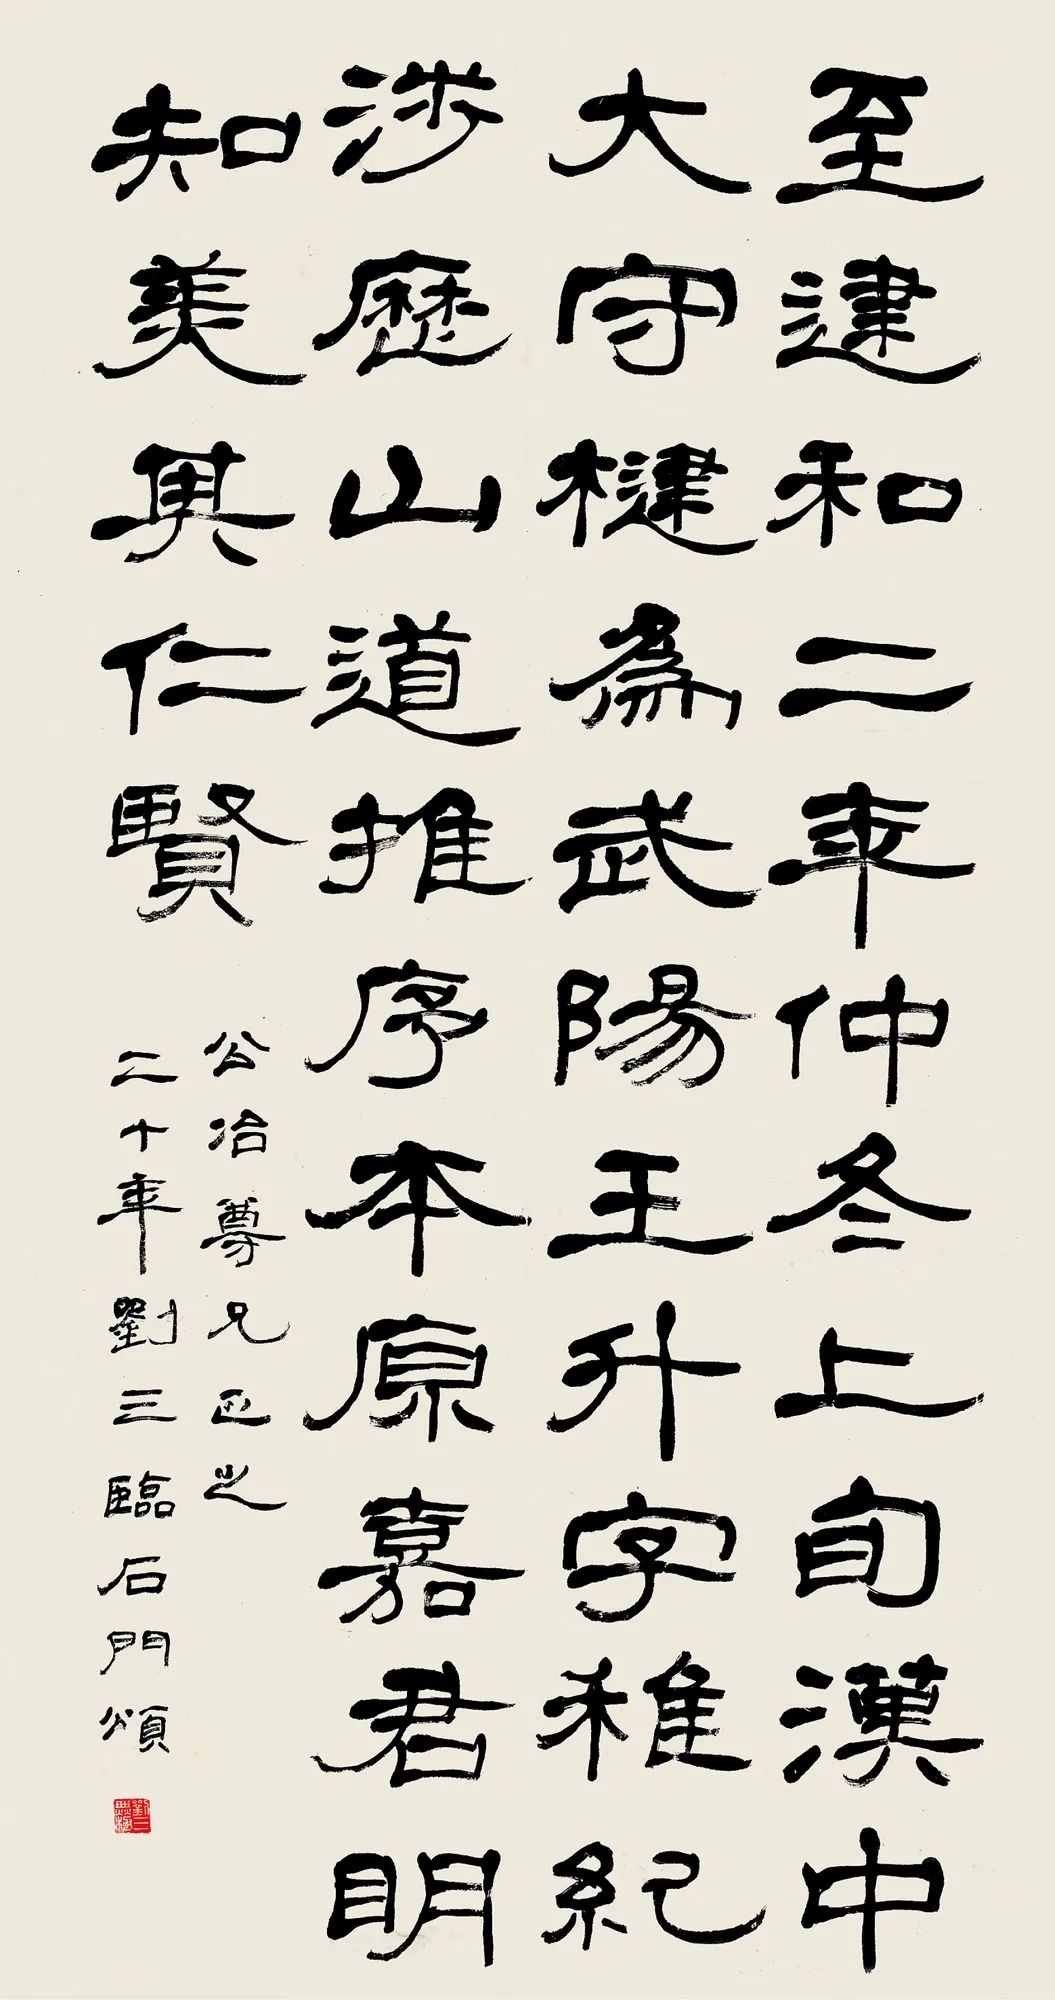 至建和二年仲冬上旬漢中
大守楗為武陽王升字稚紀
涉歷山道推序本原嘉君明
知美其仁賢
公冶尊兄正之
二十年劉三臨石門頌